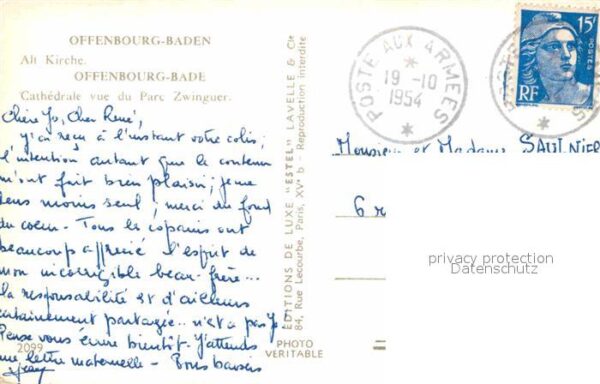 OFFENBOURG-BADEN
Alt Kirche.
OFFENBOURG-BADE
Cathédrale vue du Parc Zwinguer.
Chère Jo, Cher René,
J'ai reçu à l'instant votre colis;
l'intention autant que le contenu
m'ont fait bien plaisir; je me
sens moins seul, merci du fond
du coeur - Tous les copains ont
beaucoup apprécié l'esprit de
mon incorrigible beau-frère...
la responsabilité et d'ailleurs
certainement partagée.. n'est-a pas Jo!
Pense vous écrire bientôt - J'attends
une lettre maternelle - Bons baisers
Jean
2099
PHOTO
VERITABLE
ÉDITIONS DE LUXE "ESTEL" LAVELLE & Cie
84, Rue Lecourbe, Paris, XVe b - Reproduction interdite
POSTE AUX ARMÉES
19-10
1954
15F
POSTES
RF
POSTE AUX ARMÉES
Monsieur et Madame SAULNIER
6 r
privacy protection
Datenschutz